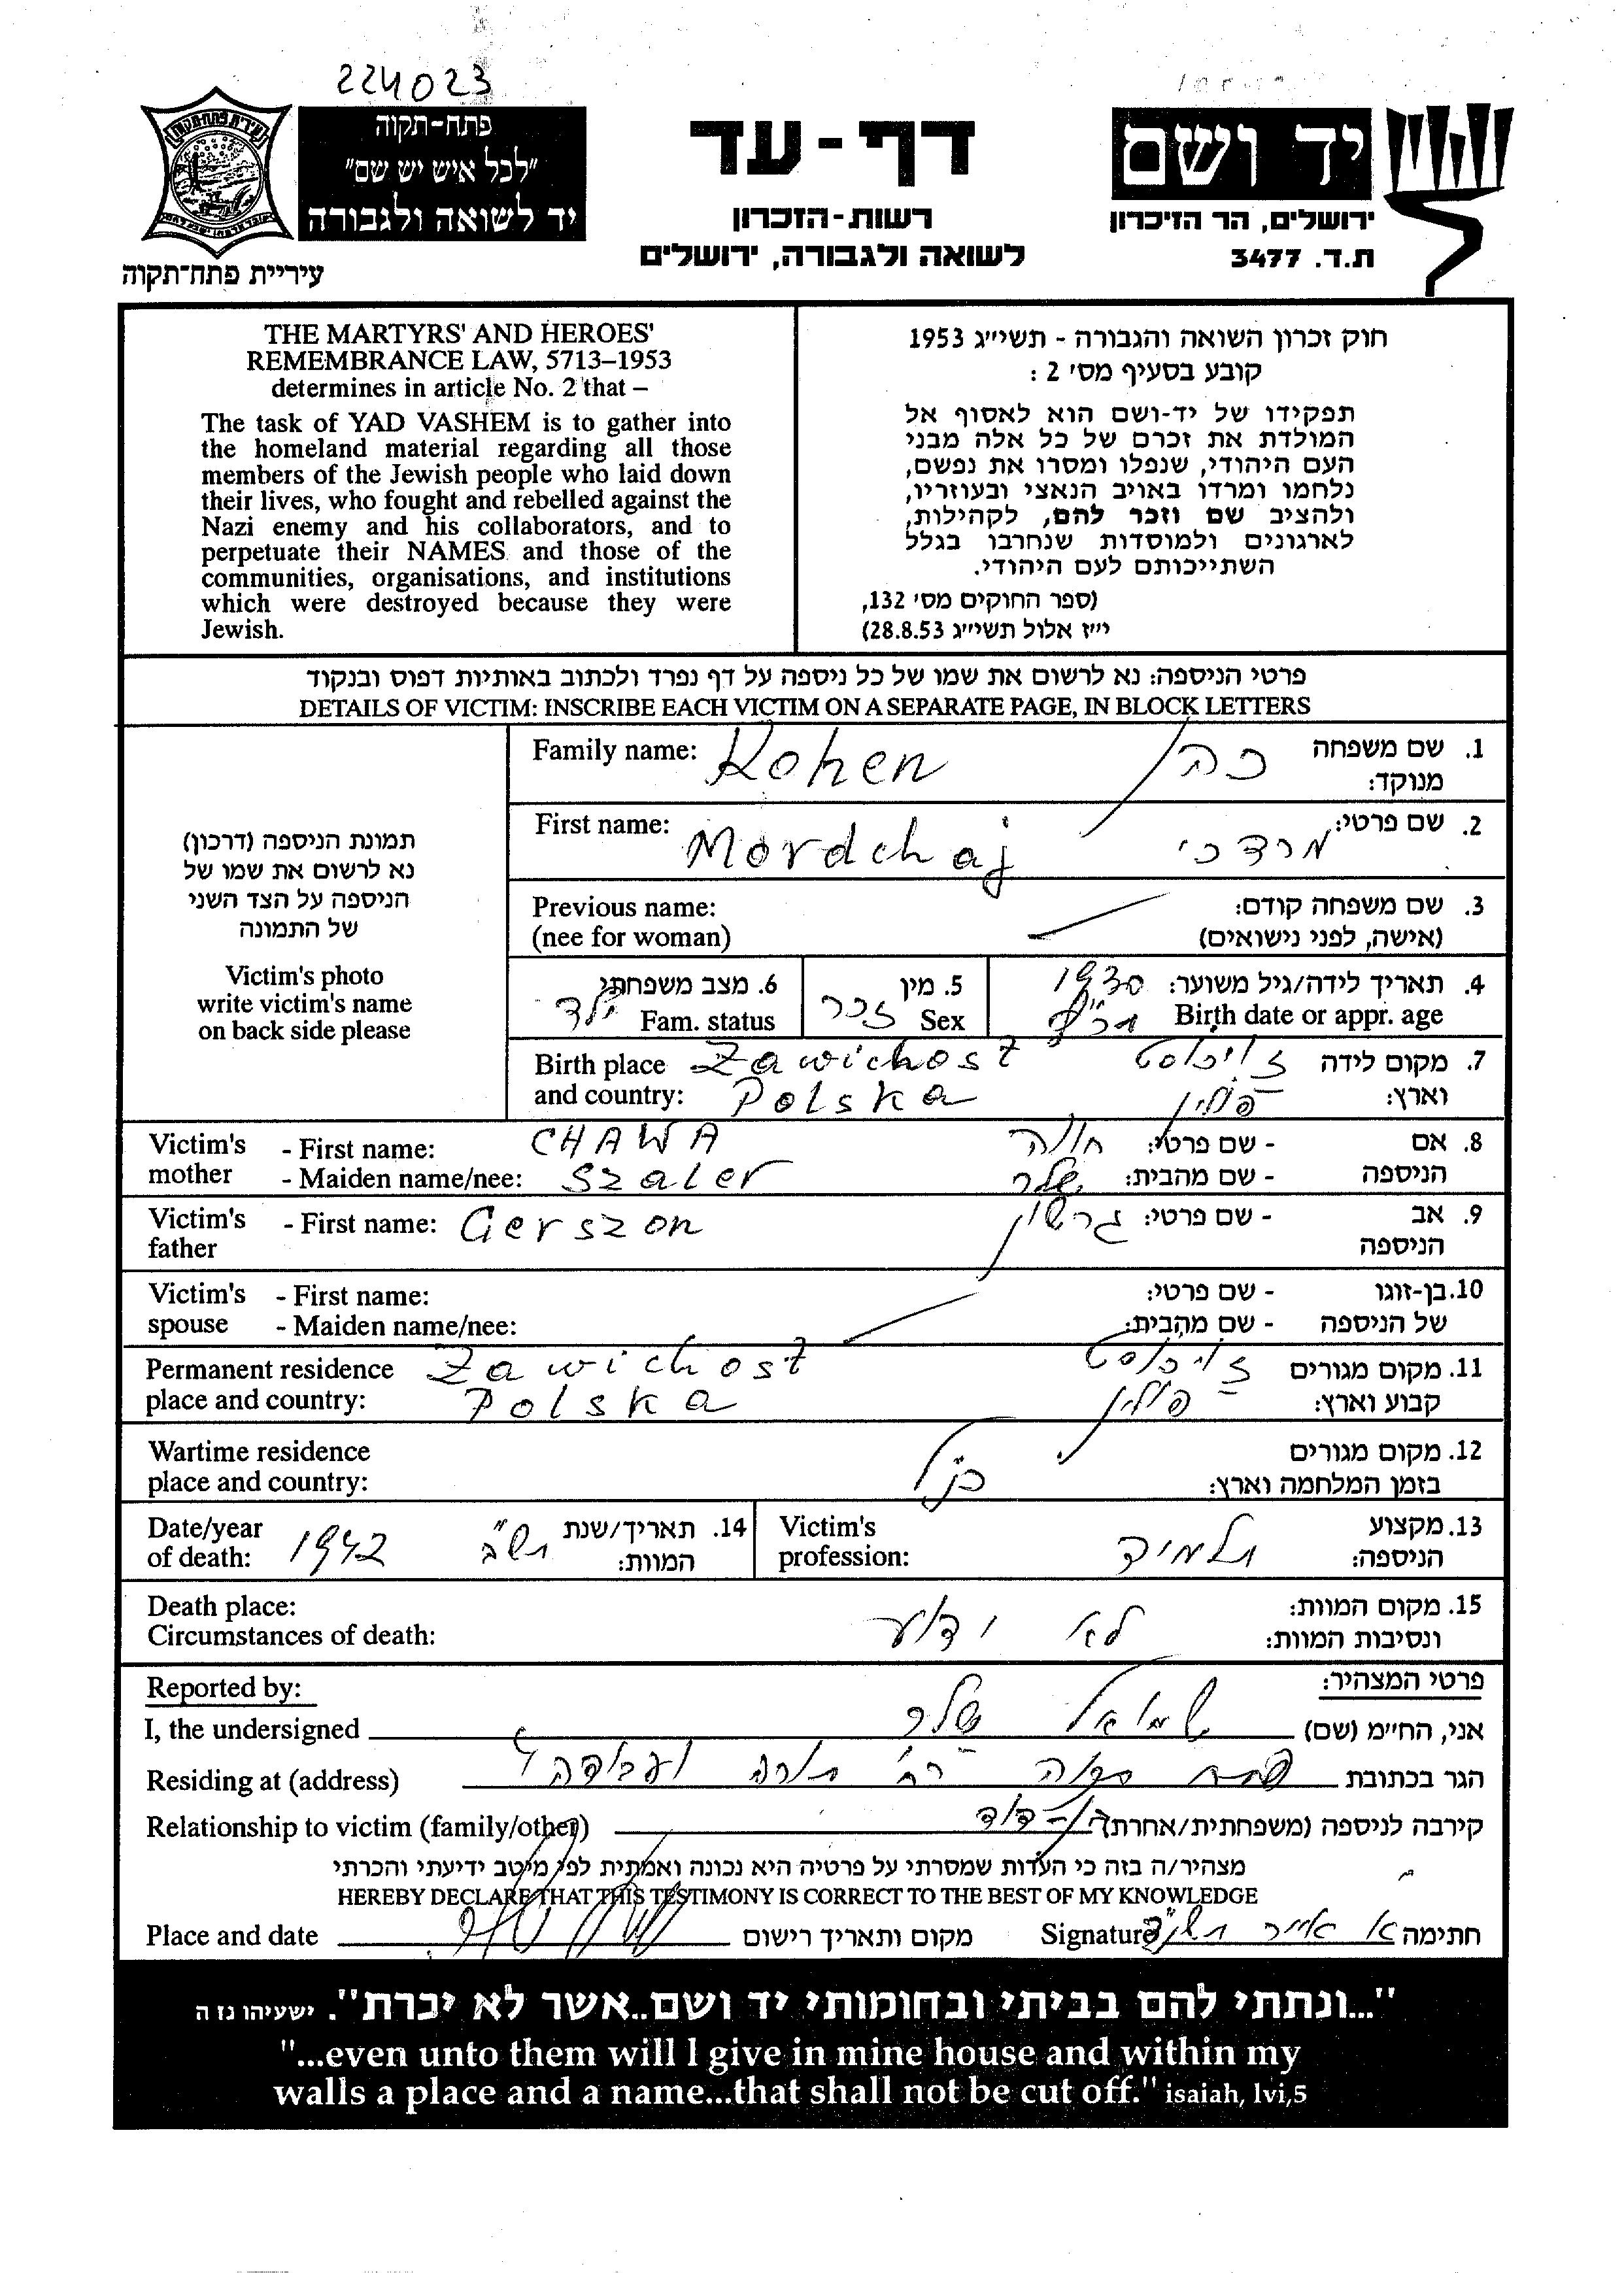 224023
פתח-תקוה
"לכל איש יש שם"
יד לשואה ולגבורה
עיריית פתח-תקוה
דף-עד
רשות-הזכרון
לשואה ולגבורה, ירושלים
יד ושם
ירושלים, הר הזיכרון
ת.ד. 3477
THE MARTYRS' AND HEROES'
REMEMBRANCE LAW, 5713-1953
determines in article No. 2 that –
The task of YAD VASHEM is to gather into
the homeland material regarding all those
members of the Jewish people who laid down
their lives, who fought and rebelled against the
Nazi enemy and his collaborators, and to
perpetuate their NAMES and those of the
communities, organisations, and institutions
which were destroyed because they were
Jewish.
חוק זכרון השואה והגבורה - תשי״ג 1953
קובע בסעיף מס׳ 2 :
תפקידו של יד-ושם הוא לאסוף אל
המולדת את זכרם של כל אלה מבני
העם היהודי, שנפלו ומסרו את נפשם,
נלחמו ומרדו באויב הנאצי ובעוזריו,
ולהציב שם וזכר להם, לקהילות,
לארגונים ולמוסדות שנחרבו בגלל
השתייכותם לעם היהודי.
(ספר החוקים מס׳ 132,
י״ז אלול תשי״ג 28.8.53)
פרטי הניספה: נא לרשום את שמו של כל ניספה על דף נפרד ולכתוב באותיות דפוס ובנקוד
DETAILS OF VICTIM: INSCRIBE EACH VICTIM ON A SEPARATE PAGE, IN BLOCK LETTERS
תמונת הניספה (דרכון)
נא לרשום את שמו של
הניספה על הצד השני
של התמונה
Victim's photo
write victim's name
on back side please
Family name: Kohen כהן 1. שם משפחה
מנוקד:
First name: Mordchaj מרדכי 2. שם פרטי:
Previous name: 3. שם משפחה קודם:
(nee for woman) (אישה, לפני נישואים)
6. מצב משפחתי 5. מין 1930 4. תאריך לידה/גיל משוער:
ילד Fam. status זכר Sex Birth date or appr. age
Birth place Zawichost זויכוסט 7. מקום לידה
and country: Polska פולין וארץ:
Victim's - First name: CHAWA חווה - שם פרטי: 8. אם
mother - Maiden name/nee: Szaler שלר - שם מהבית: הניספה
Victim's - First name: Gerszon גרשון - שם פרטי: 9. אב
father הניספה
Victim's - First name: - שם פרטי: 10. בן-זוגו
spouse - Maiden name/nee: - שם מהבית: של הניספה
Permanent residence Zawichost זויכוסט 11. מקום מגורים
place and country: Polska פולין קבוע וארץ:
Wartime residence 12. מקום מגורים
place and country: כנ״ל בזמן המלחמה וארץ:
Date/year 14. תאריך/שנת Victim's 13. מקצוע
of death: 1942 תש״ב המוות: profession: תלמיד הניספה:
Death place: 15. מקום המוות:
Circumstances of death: לא ידוע ונסיבות המוות:
Reported by: פרטי המצהיר:
I, the undersigned שמואל שלר אני, החי״מ (שם)
Residing at (address) פתח תקוה רח׳ תורה ועבודה הגר בכתובת
Relationship to victim (family/other) בן-דוד קירבה לניספה (משפחתית/אחרת)
מצהיר/ה בזה כי העדות שמסרתי על פרטיה היא נכונה ואמתית לפי מיטב ידיעתי והכרתי
HEREBY DECLARE THAT THIS TESTIMONY IS CORRECT TO THE BEST OF MY KNOWLEDGE
Place and date מקום ותאריך רישום Signature א אייר חתימה
"...ונתתי להם בביתי ובחומותי יד ושם..אשר לא יכרת". ישעיהו נז ה
"...even unto them will I give in mine house and within my
walls a place and a name...that shall not be cut off." isaiah, lvi,5